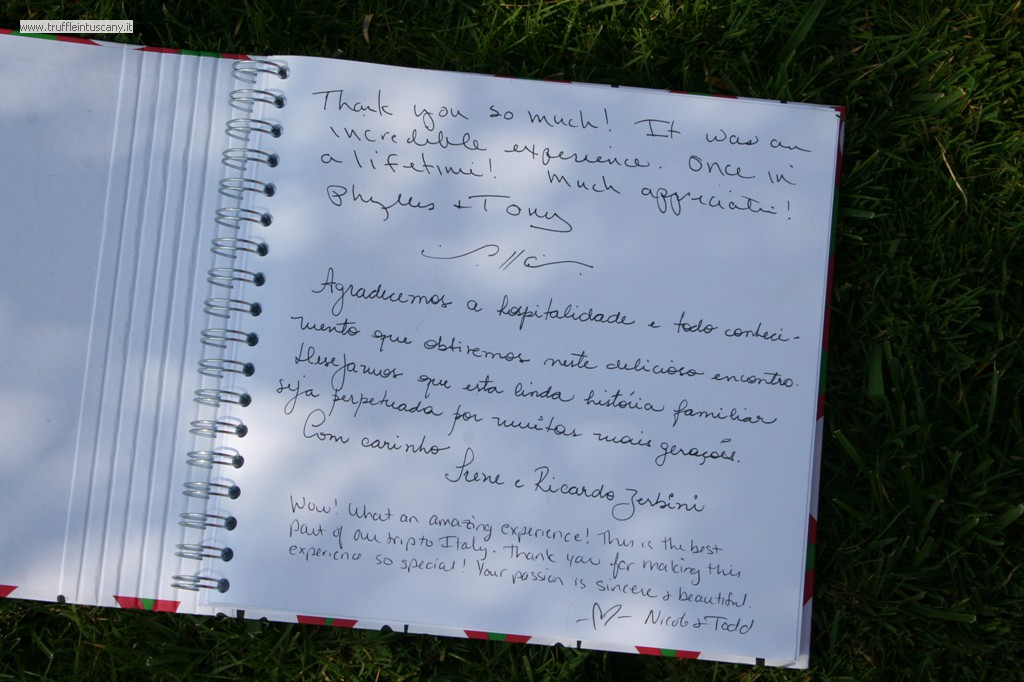 www.truffleintuscany.it
Thank you so much! It was an
incredible experience. Once in
a lifetime! Much appreciated!
Phyllis + Tony
Agradecemos a hospitalidade e todo conheci-
mento que obtivemos neste delicioso encontro.
Desejamos que esta linda história familiar
seja perpetuada por muitas mais gerações.
Com carinho
Irene e Ricardo Zerbini
Wow! What an amazing experience! This is the best
part of our trip to Italy. Thank you for making this
experience so special! Your passion is sincere & beautiful.
Nicole & Todd